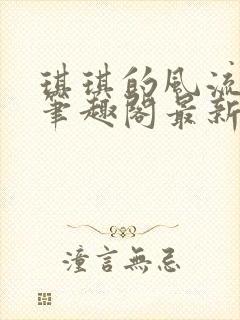 琪琪的風流
筆趣閣最新
潼言無忌